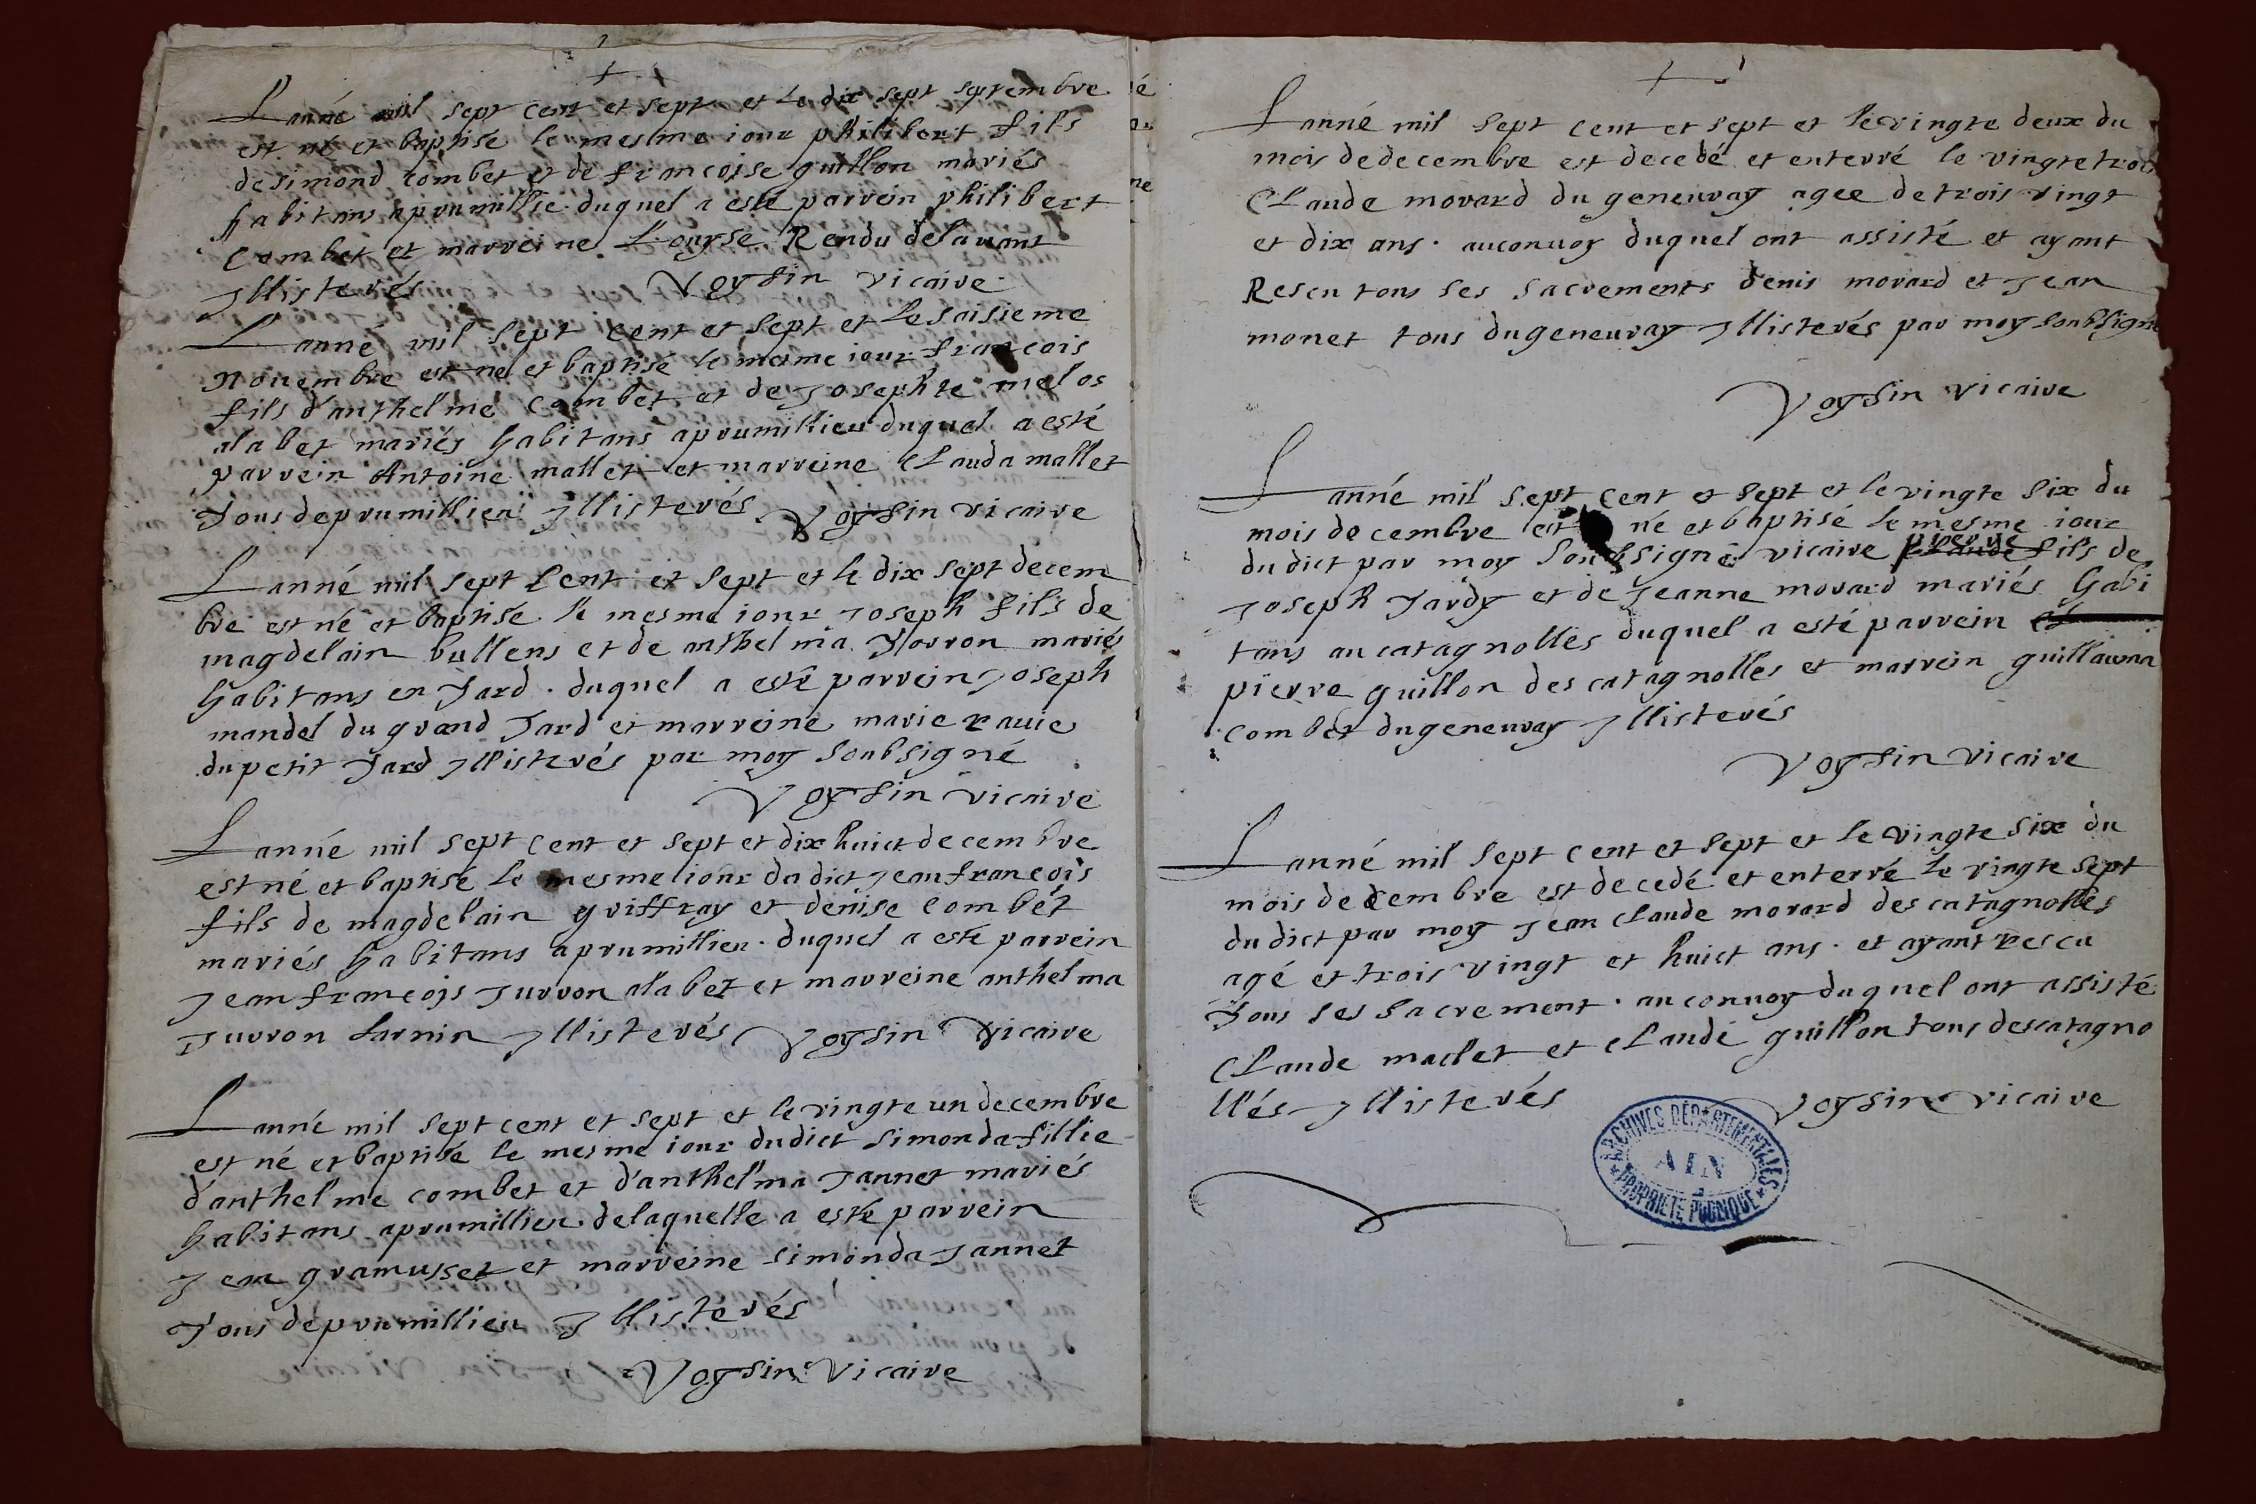 Lanné mil sept cent et sept et le dix sept septembre
est né et baptisé le mesme iour philibert fils
de simond combet et de francoise guillon mariés
habitans a prumillie duquel a esté parrein philibert
combet et marreine Louyse Rendu delavant
Jllisterés Voysin vicaire
Lanné mil sept cent et sept et le saisieme
novembre est né et baptisé le mesme iour francois
fils d'anthelme combet et de Josephte melos
alabet mariés habitans a prumillieu duquel a esté
parrein Antoine mallet et marreine Clauda mallet
Tous de prumillieu Jllisterés Voysin vicaire
Lanné mil sept Cent et sept et le dix sept decem
bre est né et baptisé le mesme iour Joseph fils de
magdelain bullens et de anthelma Morron mariés
habitans en Jard . duquel a esté parrein Joseph
mandel du grand Jard et marreine marie ravie
du petit Jard Jllisterés par moy soubsigné
Voysin vicaire
Lanné mil sept cent et sept et dix huict decembre
est né et baptisé le mesme iour du dict Jean francois
fils de magdelain griffray et denise combet
mariés habitans a prumillieu . duquel a esté parrein
Jean francois Jurron alabet et marreine anthelma
Jurron Larnin Jllisterés Voysin vicaire
Lanné mil sept cent et sept et le vingte un decembre
est né et baptisé le mesme iour du dict simonda fillie
d'anthelme combet et d'anthelma Jannet mariés
habitans a prumillieu . delaquelle a esté parrein
Jean gramusset et marreine simonda Jannet
Tous de prumillieu Jllisterés
Voysin vicaire
Lanné mil sept cent et sept et le vingte deux du
mois de decembre est decedé et enterré le vingte trois
Claude morard du geneuvay agee de trois vingt
et dix ans . au convoy duquel ont assisté et ayant
Rescu tous ses sacrements denis morard et Jean
monet tous du geneuvay Jllisterés par moy soubsigne
Voysin vicaire
Lanné mil sept cent et sept et le vingte six du
mois decembre est né et baptisé le mesme iour
du dict par moy soubsigné vicaire pierre fils de
Joseph Tardy et de Jeanne morard mariés habi
tans au catagnolles duquel a esté parrein
pierre guillon des catagnolles et marrein guillauma
combet du geneuvay Jllisterés
Voysin vicaire
Lanné mil sept cent et sept et le vingte six du
mois decembre est decedé et enterré le vingte sept
du dict par moy Jean Claude morard des catagnolles
agé et trois vingt et huict ans . et ayant rescu
Tous ses sacrement . au convoy duquel ont assisté
Claude maclet et Claude guillon tous descatagno
llés Jllisterés Voysin vicaire
ARCHIVES DÉPARTEMENTALES
AIN
PROPRIÉTÉ PUBLIQUE